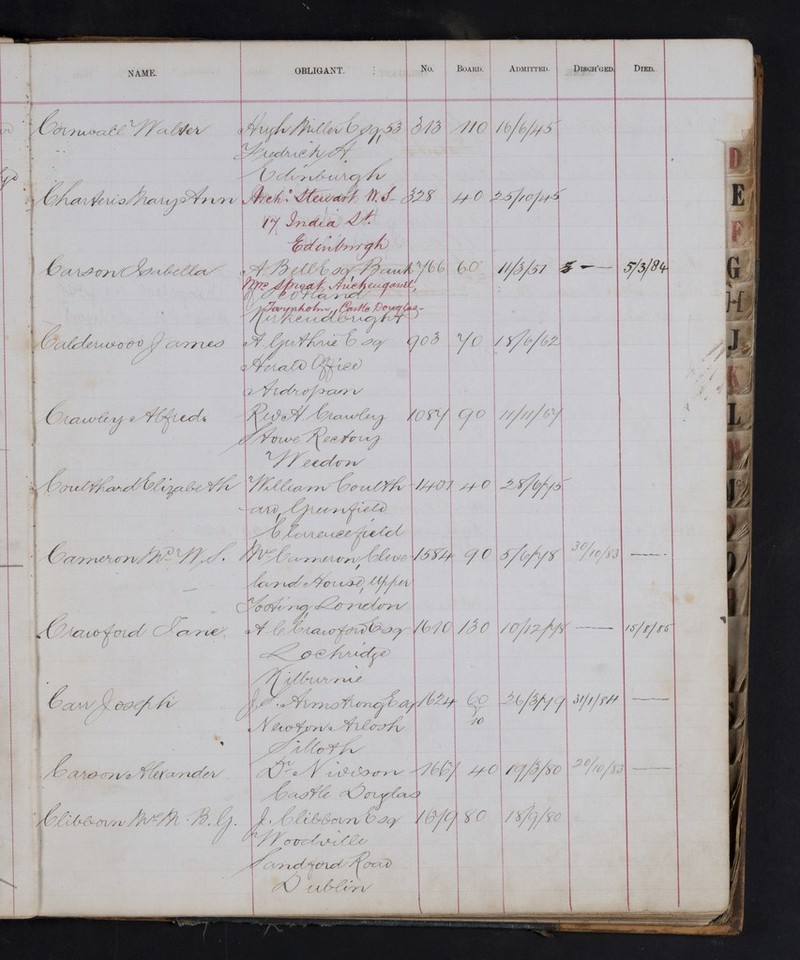 NAME. OBLIGANT. No. BOARD. ADMITTED. DISCH'GED. DIED.
Cornwall Walter Hugh Miller Esq, 53 313 110 16/6/45
Fredrick St
Edinburgh
Charteris Mary Ann Archd Stewart W.S. 328 40 25/10/45
17, India St.
Edinburgh
Carson Isabella A Bell Esq Bank 766 60 11/3/57 — 5/3/84
Mrs Sproat, Auchengassel,
of Scotland
Tarynholm, Castle Douglas
Kirkcudbright
Calderwood James A. Guthrie Esq 903 70 18/6/62
Herald Office
Ardrossan
Crawley Alfred Revd. Crawley 1087 90 11/11/67
Stowe Rectory
Weedon
Coulthard Elizabeth William Coulth 1407 40 28/6/75
ard, Greenfield
Clarencefield
Cameron W. S. Mrs Cameron, Cleve 1584 90 5/6/78 30/10/83 —
land House, Upper
Tooting London
Crawford Jane. A. C. Crawford Esq 1610 130 10/12/78 — 15/8/85
Lochridge
Kilburnie
Carr Joseph J. S. Armstrong Esq 1624 60 26/3/79 31/1/84 —
70
Newton Arlosh
Silloth
Carson Alexander Dr. Nivison 1667 40 19/3/80 20/10/83 —
Castle Douglas
Clibborn B. G. J. Clibborn Esq 80 18/9/80
Woodville
Sandford Road
Dublin
D
E
F
G
H
J
K
L
M